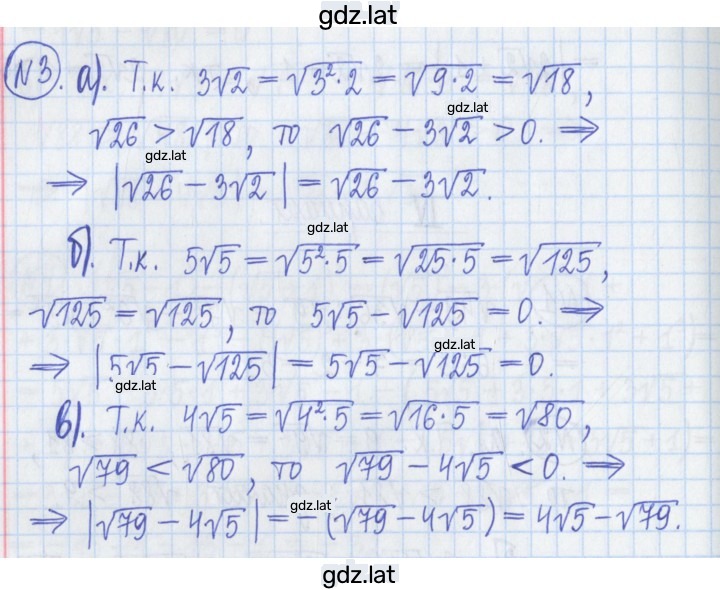 gdz.lat
№3. а). Т.к. 3√2 = √(3²·2) = √(9·2) = √18,
gdz.lat
√26 > √18, то √26 − 3√2 > 0. ⇒
gdz.lat
⇒ |√26 − 3√2| = √26 − 3√2.
gdz.lat
б). Т.к. 5√5 = √(5²·5) = √(25·5) = √125,
√125 = √125, то 5√5 − √125 = 0. ⇒
gdz.lat
⇒ |5√5 − √125| = 5√5 − √125 = 0.
gdz.lat
в). Т.к. 4√5 = √(4²·5) = √(16·5) = √80,
√79 < √80, то √79 − 4√5 < 0. ⇒
gdz.lat
⇒ |√79 − 4√5| = −(√79 − 4√5) = 4√5 − √79.
gdz.lat